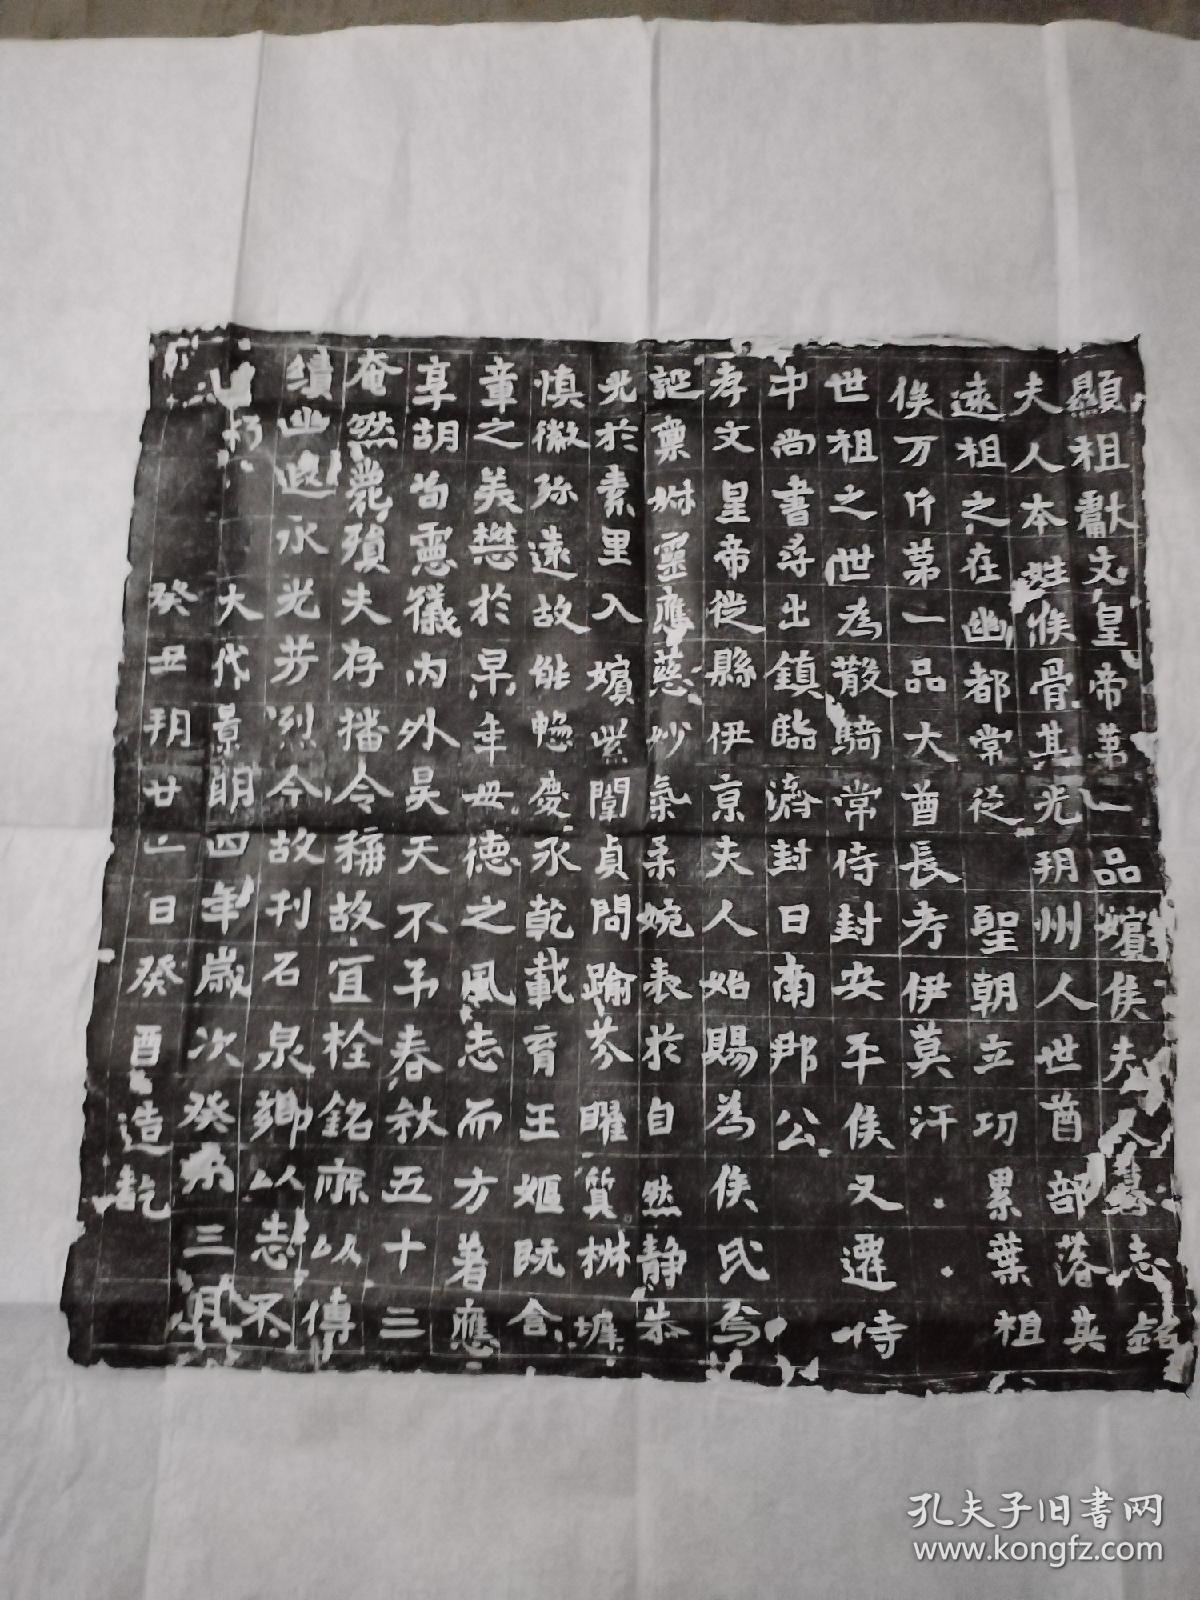 顯祖獻文皇帝第一品嬪侯夫人墓志銘
夫人本姓侯骨其光朔州人世酋部落其
遠祖之在幽都常從聖朝立功累葉祖
俟万斤第一品大酋長考伊莫汗
世祖之世為散騎常侍封安平侯又遷侍
中尚書尋出鎮臨濟封日南郡公
孝文皇帝從縣伊京夫人始賜為侯氏焉
誕稟姊靈應慈妙氣柔婉表於自然靜恭
光於素里入嬪紫闈貞問踰芬曜質椒墀
慎徽弥遠故能憁慶承乾載育王姬既含
章之美懋於早年母德之風志而方著應
享胡苟靈儀內外昊天不予春秋五十三
奄然薨殞夫存播令稱故宜栓銘庥以傳
績幽遐永光芳烈今故刊石泉鄉以志不
朽
大代景明四年歲次癸未三月
癸丑朔廿一日癸酉造訖
孔夫子旧书网
www.kongfz.com